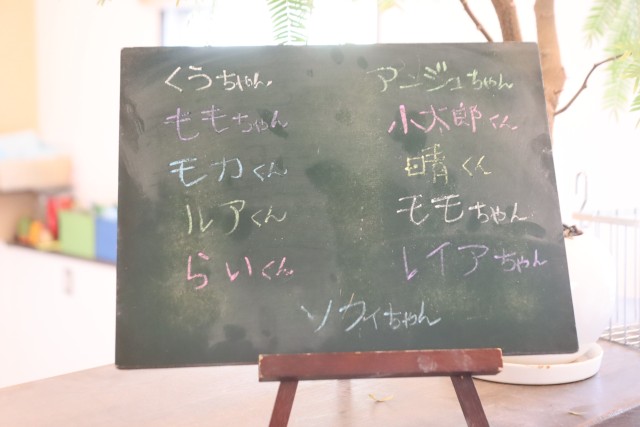 くうちゃん
アンジュちゃん
ももちゃん
小太郎くん
モカくん
晴くん
ルアくん
モモちゃん
らいくん
レイアちゃん
ソウィちゃん